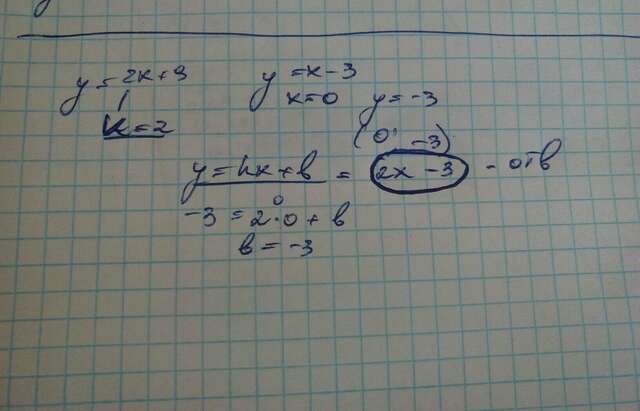 y = 2x + 9 y = x - 3
k = 2 x = 0 y = -3
(0; -3)
y = kx + b = 2x - 3 - отв
0
-3 = 2·0 + b
b = -3